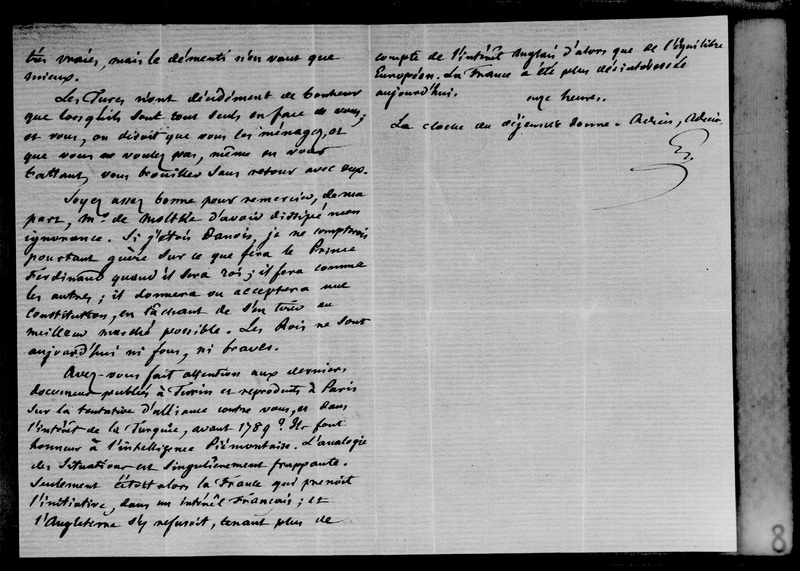 très vraies, mais le démenti n'en vaut que
mieux.
Les Turcs n'ont décidément de bonheur
que lorsqu'ils sont tout seuls en face de vous;
et vous, on diroit que vous les ménagez, et
que vous ne voulez pas, même en vous
battant, vous brouiller sans retour avec eux.
Soyez assez bonne pour remercier, de ma
part, Mr. de Moltke d'avoir dissipé mon
ignorance. Si j'étois Danois, je ne compterois
pourtant guère sur ce que fera le Prince
Ferdinand quand il sera roi; il fera comme
les autres; il donnera ou acceptera une
constitution, en tâchant de s'en tirer au
meilleur marché possible. Les Rois ne sont
aujourd'hui ni fous, ni braves.
Avez-vous fait attention aux derniers
documens publiés à Turin et reproduits à Paris
sur la tentative d'alliance contre vous, et dans
l'intérêt de la Turquie, avant 1789? Ils font
honneur à l'intelligence Piémontaise. L'analogie
des situations est singulièrement frappante.
Seulement c'étoit alors la France qui prenoit
l'initiative, dans un intérêt Français; et
l'Angleterre s'y refusoit, tenant plus de
compte de l'intérêt Anglais d'alors que de l'équilibre
Européen. La France a été plus désintéressée
aujourd'hui.
onze heures.
La cloche du déjeuner sonne. Adieu, Adieu.